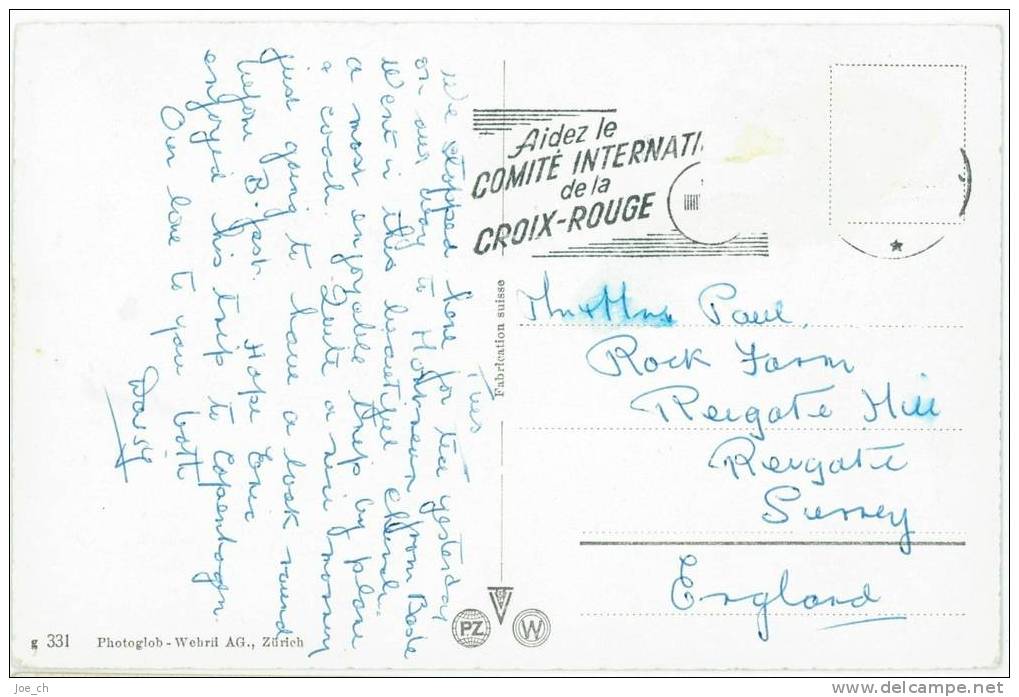 Tues
We stopped here for tea yesterday
on our way to from Basle
Went in this beautiful church.
a most enjoyable trip by plane
& coach. Quite a nice morning
just going to have a look round
before B.fast. Hope Eric
enjoyed his trip to Copenhagen.
Our love to you both
Daisy
Aidez le
COMITÉ INTERNATI
de la
CROIX-ROUGE
Fabrication suisse
Paul,
Rock Farm
Reigate Hill
Reigate
Surrey
England
PZ
W
g 331 Photoglob - Wehrli AG., Zürich
joe_ch
www.delcampe.net